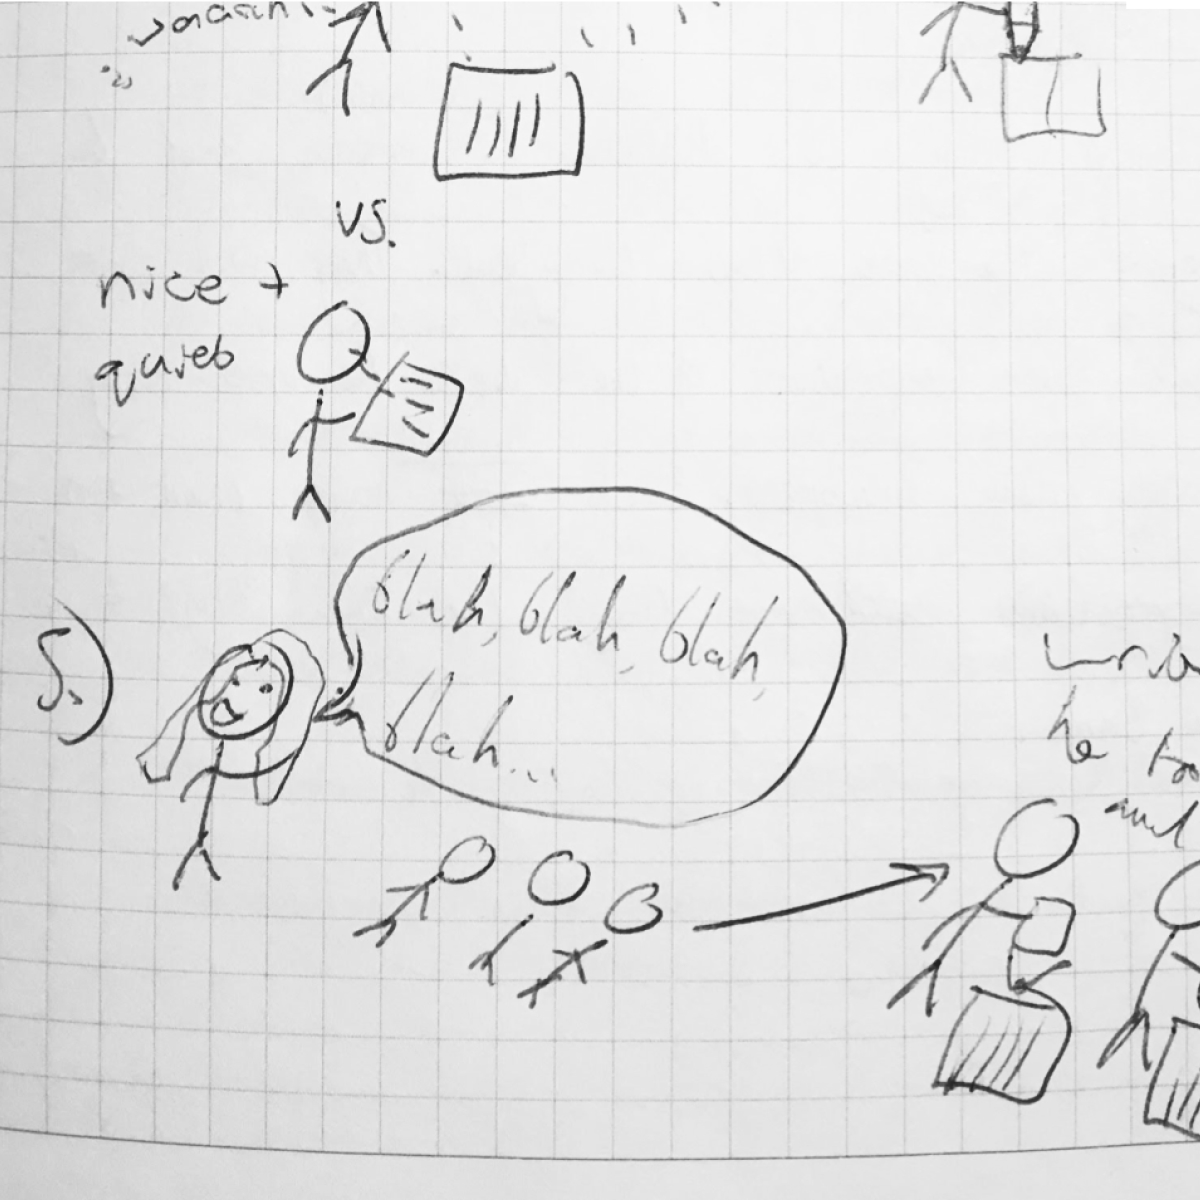 vs.
nice +
quieb
5.)
blah, blah, blah,
blah...
he
and